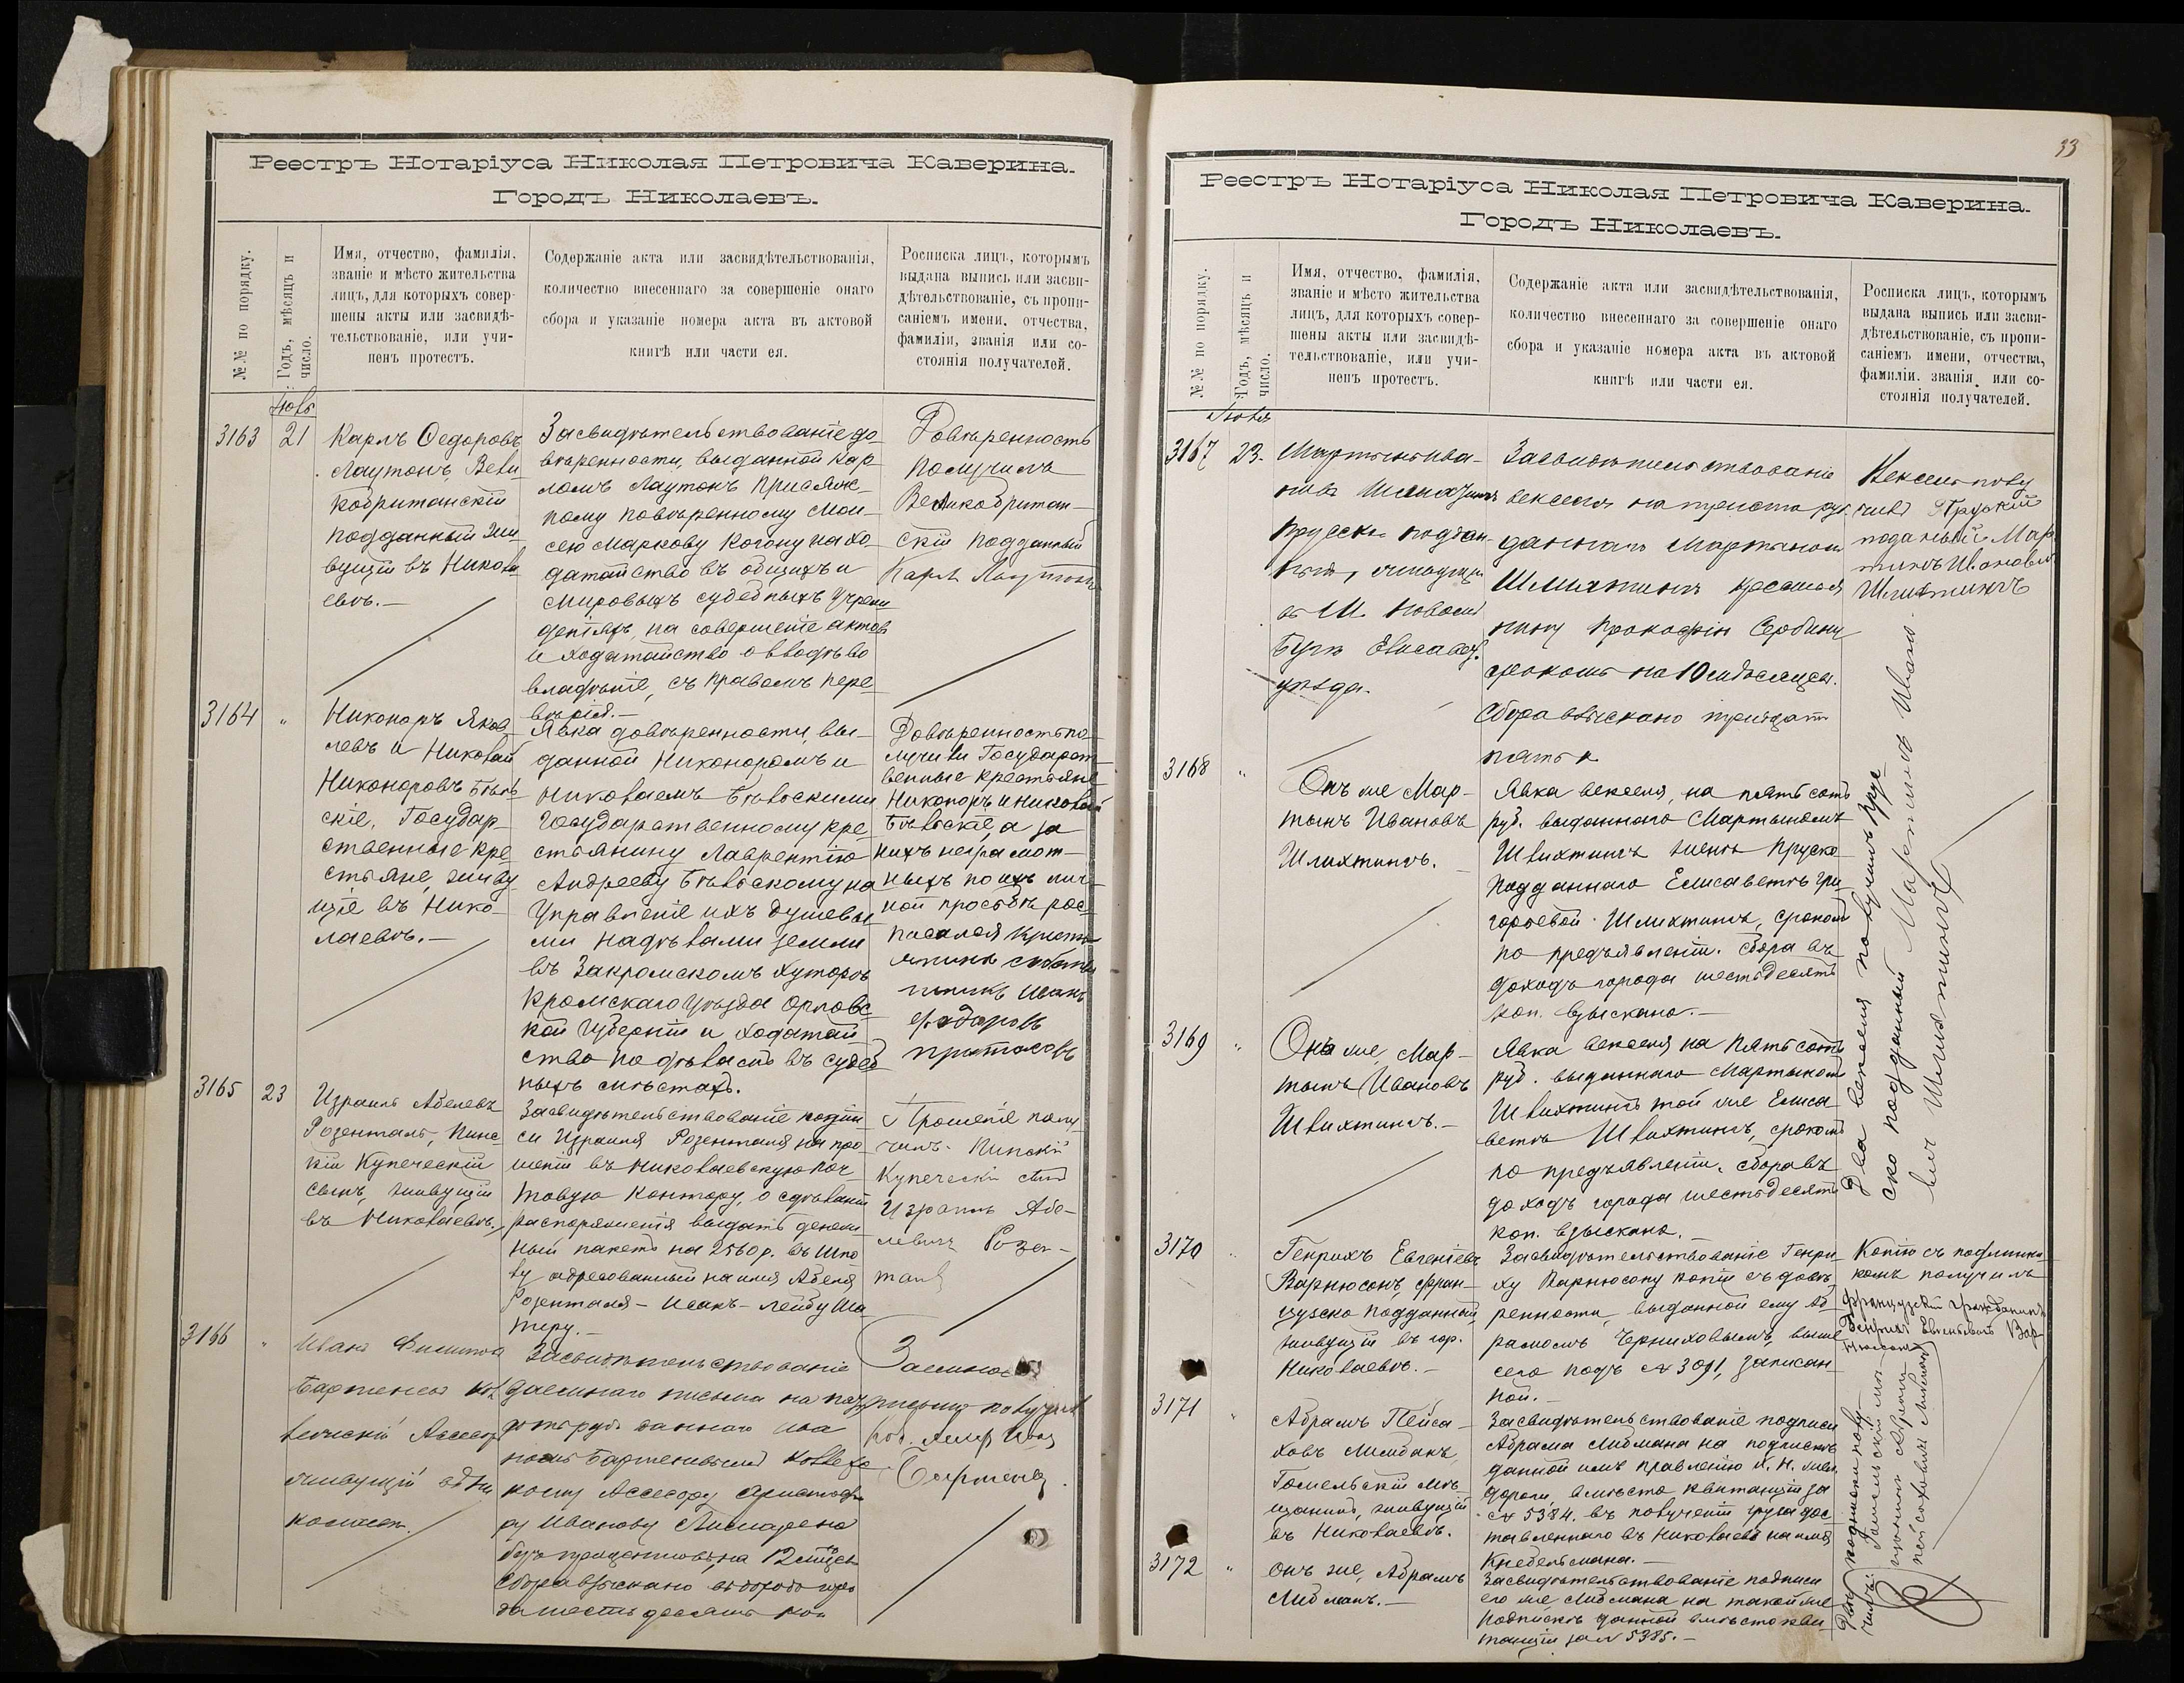 Реестръ Нотаріуса Николая Петровича Каверина.
Городъ Николаевъ.
№№ по порядку.
Годъ, мѣсяцъ и
число.
Имя, отчество, фамилія,
званіе и мѣсто жительства
лицъ, для которыхъ совер-
шены акты или засвидѣ-
тельствованіе, или учи-
ненъ протестъ.
Содержаніе акта или засвидѣтельствованія,
количество внесеннаго за совершеніе онаго
сбора и указаніе номера акта въ актовой
книгѣ или части ея.
Росписка лицъ, которымъ
выдана выпись или засви-
дѣтельствованіе, съ пропи-
саніемъ имени, отчества,
фамиліи, званія или со-
стоянія получателей.
3163
21
Карлъ Ѳедоровъ
Лаутонъ, Вели
кобританскій
подданный жи
вущій въ Никола
евѣ.—
Засвидѣтельствованіе до
вѣренности, выданной Кар
ломъ Лаутонъ Присяж-
ному повѣренному Мои-
сею Маркову Когону на хо-
датайство въ общихъ и
мировыхъ судебныхъ учреж
деніяхъ, на совершеніе актовъ
и ходатайство о вводѣ во
владѣніе, съ правомъ пере
вѣрія.—
Довѣренность
получилъ
Великобритан-
скій подданный
Карл Лаутонъ
3164
"
Никоноръ Яков
левъ и Николай
Никоноровъ Бѣль
скіе, Государ-
ственные кре
стьяне, живу
щіе въ Нико-
лаевѣ.—
Явка довѣренности, вы-
данной Никоноромъ и
Николаемъ Бѣльскими
Государственному кре
стьянину Лаврентію
Андрееву Бѣльскому на
управленіе ихъ душевы
ми надѣлами земли
въ Закромскомъ хуторѣ
Кромскаго уѣзда Орловс
кой Губерніи и ходатай
ство по дѣламъ въ судеб
ныхъ мѣстахъ.
Довѣренность по-
лучили Государст
венные крестьяне
Никоноръ и Николай
Бѣльскіе, а за
нихъ неграмот-
ныхъ по ихъ лич-
ной просьбѣ рос-
писался
Иванъ
3165
23
Израиль Абелевъ
Розенталь, Пинс-
кій Купеческій
сынъ, живущій
въ Николаевѣ.
Засвидѣтельствованіе подпи
си Израиля Розенталя на про
шеніи въ Николаевскую поч
товую Контору, о сдѣланіи
распоряженія выдать денеж
ный пакетъ на 2560 р. въ Шпо
лу адресованный на имя Абеля
Розенталя - Исакъ - Лейбу Ша
перу.—
Прошеніе полу-
чилъ. Пинскій
Купеческій сынъ
Израиль Абе-
левичъ Розен-
таль
3166
"
Иванъ
Бартеневъ Кол
лежскій Ассесор
живущій въ Ни
колаевѣ.
Засвидѣтельствованіе
заемнаго письма на
рубъ даннаго Ива
номъ Бартеневымъ Коллежс
кому Ассесору
ру Иванову
безъ процентовъ, на 12 мѣсяцев
Сбора взыскано въ доходъ горо
да шестьдесятъ коп
Заемное
письмо получил
Кол. Асес. Иван
Бартенев.
33
Реестръ Нотаріуса Николая Петровича Каверина.
Городъ Николаевъ.
№№ по порядку.
Годъ, мѣсяцъ и
число.
Имя, отчество, фамилія,
званіе и мѣсто жительства
лицъ, для которыхъ совер-
шены акты или засвидѣ-
тельствованіе, или учи-
ненъ протестъ.
Содержаніе акта или засвидѣтельствованія,
количество внесеннаго за совершеніе онаго
сбора и указаніе номера акта въ актовой
книгѣ или части ея.
Росписка лицъ, которымъ
выдана выпись или засви-
дѣтельствованіе, съ пропи-
саніемъ имени, отчества,
фамиліи, званія, или со-
стоянія получателей.
3167
23.
Мартынъ Ива-
новъ Шлихтингъ
Прусско-поддан-
ный, живущій
въ М. Новомъ
Бугѣ Елисавет.
уѣзда.
Засвидѣтельствованіе
векселя на триста руб.
даннаго Мартыномъ
Шлихтингъ
Прокофію Сербину
срокомъ на 10 мѣсяцевъ.
Сбора взыскано тридцать
пять к
Вексель полу
чилъ Прускій
поданный Мар
тинъ Ивановичъ
Шлихтингъ
3168
"
Онъ же Мар-
тынъ Ивановъ
Шлихтингъ.
Явка векселя, на пятьсотъ
руб. выданнаго Мартыномъ
Шлихтингъ женѣ Прусско-
подданнаго Елисаветѣ Гри
горьевой Шлихтингъ, срокомъ
по предъявленіи. Сбора въ
доходъ города шестьдесятъ
коп. взыскано.—
3169
"
Онъ же, Мар-
тынъ Ивановъ
Шлихтингъ.—
Явка векселя на пятьсотъ
руб. выданнаго Мартыномъ
Шлихтингъ той же Елиса
ветѣ Шлихтингъ, срокомъ
по предъявленіи. Сбора въ
доходъ города шестьдесятъ
коп. взыскано.—
Два векселя получилъ Прус
ско подданный Мартинъ Ивано
вич Шлихтингъ
3170
"
Генрихъ Евгеніевъ
Варнюсонъ, Фран-
цузско подданный,
живущій въ гор.
Николаевѣ.—
Засвидѣтельствованіе Генри
ху Варнюсону копіи съ довѣ
ренности, выданной ему Аб
рамомъ Черниховымъ, выше
сего подъ № 3091, записан
ной.—
Копію съ подлинни
комъ получилъ
французскій гражданинъ
Генрихъ Евгеніевичъ Вар
нюсонъ
3171
"
Абрамъ Пейса-
ховъ Либманъ,
Гомельскій мѣ-
щанинъ, живущій
въ Николаевѣ.
Засвидѣтельствованіе подписи
Абрама Либмана на подпискѣ
данной имъ правленію Х. Н. жел.
дороги вмѣсто квитанціи за
№ 5384. въ полученіи груза дос
тавленнаго въ Николаевъ на имя
Кнебельмана.—
3172
"
Онъ же, Абрамъ
Либманъ.—
Засвидѣтельствованіе подписи
его же, Либмана на такой же
подпискѣ данной вмѣсто кви
танціи за № 5385.—
Двѣ подписки полу-
чилъ: Гомельскій мѣ-
щанинъ Абрамъ
Пейсаховичъ Либманъ